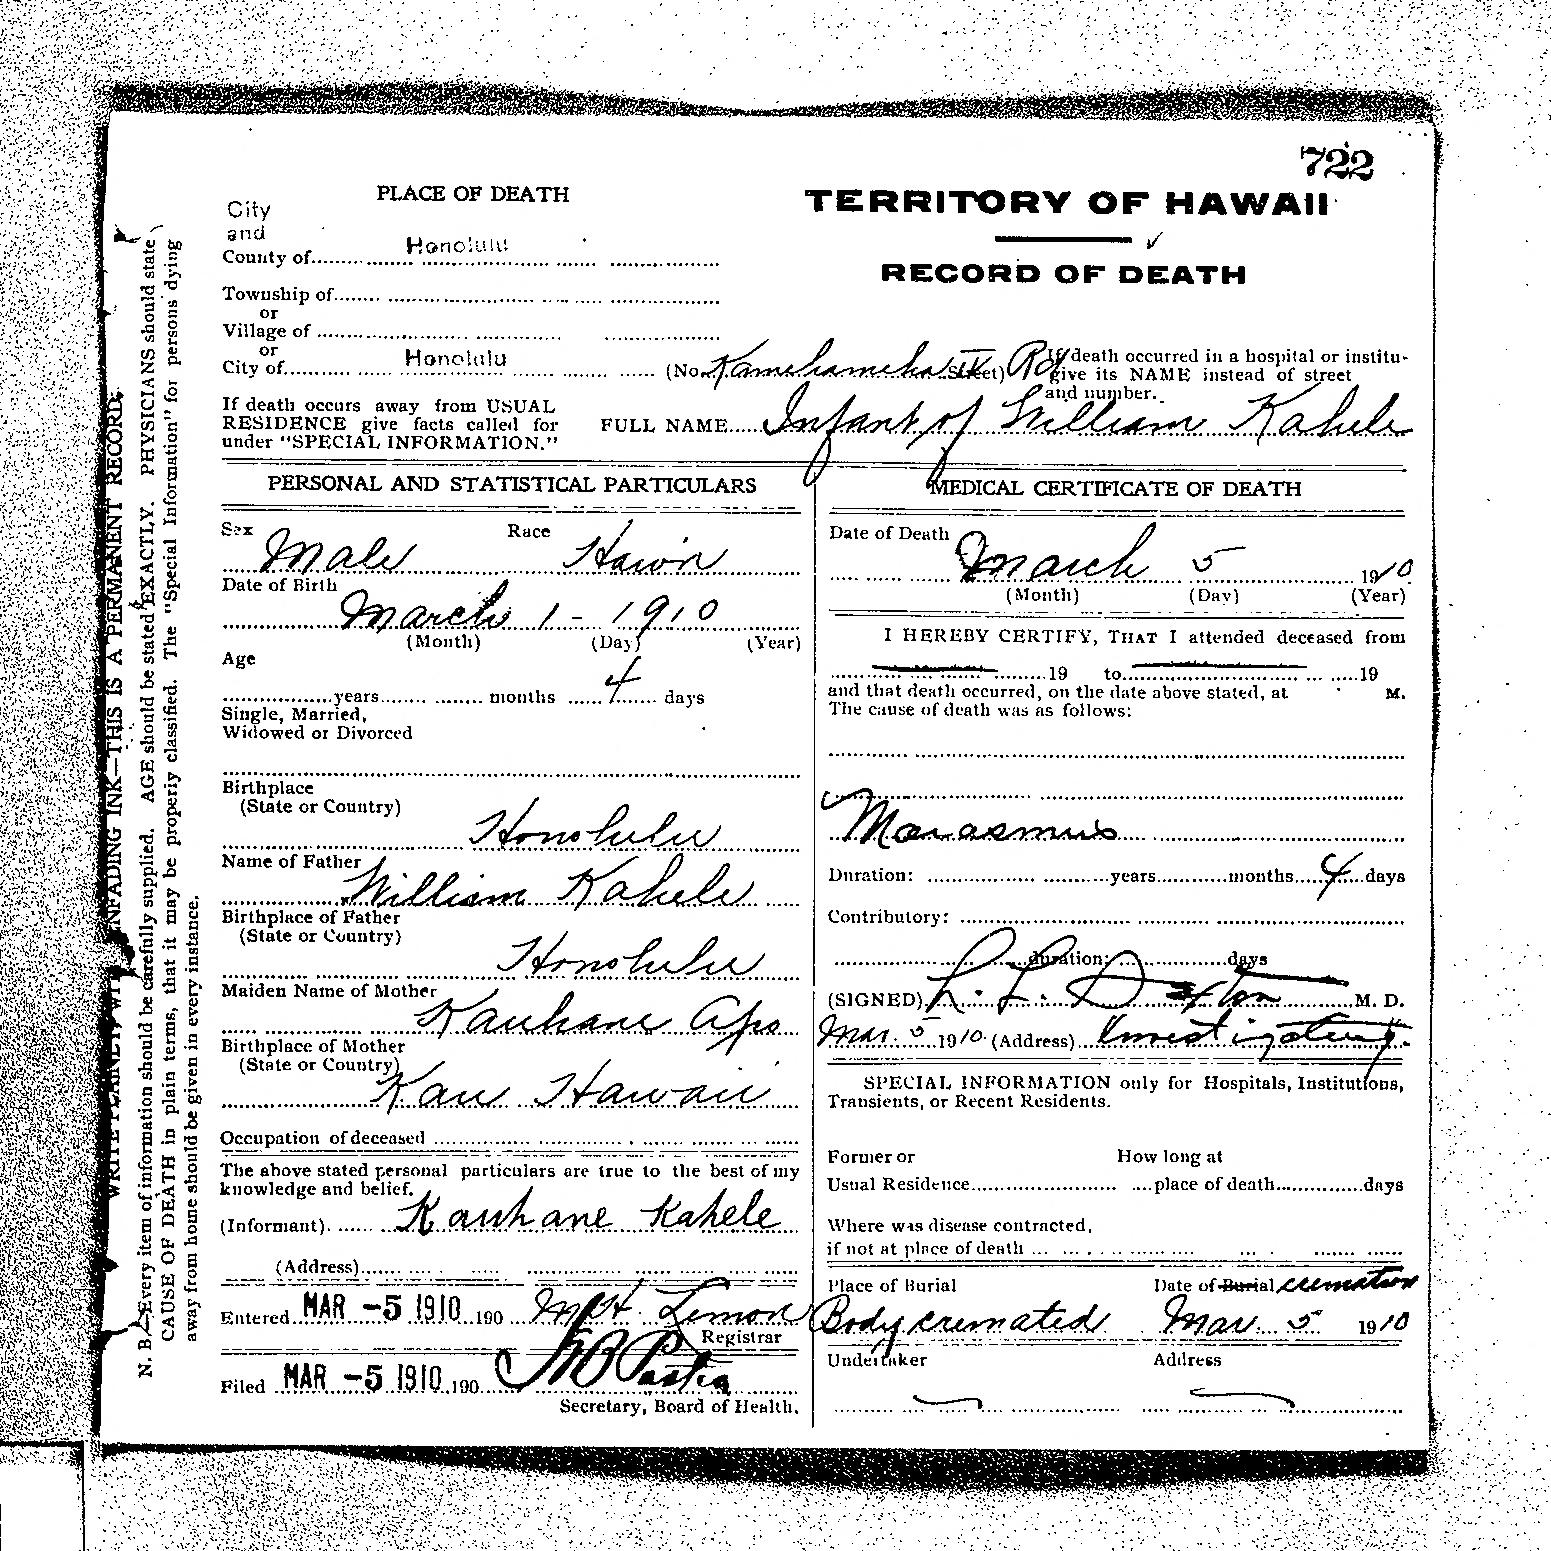 722
PLACE OF DEATH
City
and
County of Honolulu
Township of
or
Village of
or
City of Honolulu
TERRITORY OF HAWAII
RECORD OF DEATH
(No. Kamehameha IV Rd Street)
If death occurred in a hospital or institu-
give its NAME instead of street
and number.
If death occurs away from USUAL
RESIDENCE give facts called for
under "SPECIAL INFORMATION."
FULL NAME Infant of William Kahele
PERSONAL AND STATISTICAL PARTICULARS
Sex Male Race Haw'n
Date of Birth
March 1 - 1910
(Month) (Day) (Year)
Age
years months 4 days
Single, Married,
Widowed or Divorced
Birthplace
(State or Country)
Honolulu
Name of Father
William Kahele
Birthplace of Father
(State or Country)
Honolulu
Maiden Name of Mother
Kauhane Apo
Birthplace of Mother
(State or Country)
Kau Hawaii
Occupation of deceased
The above stated personal particulars are true to the best of my
knowledge and belief.
(Informant) Kauhane Kahele
(Address)
Entered MAR -5 1910 190 Lemon
Registrar
Filed MAR -5 1910 190
Secretary, Board of Health.
MEDICAL CERTIFICATE OF DEATH
Date of Death
March 5 1910
(Month) (Day) (Year)
I HEREBY CERTIFY, THAT I attended deceased from
19 to 19
and that death occurred, on the date above stated, at M.
The cause of death was as follows:
Marasmus
Duration: years months 4 days
Contributory:
duration: days
(SIGNED) M. D.
Mar. 5 1910 (Address)
SPECIAL INFORMATION only for Hospitals, Institutions,
Transients, or Recent Residents.
Former or How long at
Usual Residence place of death days
Where was disease contracted,
if not at place of death
Place of Burial Date of Burial cremation
Body cremated Mar. 5 1910
Undertaker Address
N. B.—Every item of information should be carefully supplied. AGE should be stated EXACTLY. PHYSICIANS should state
CAUSE OF DEATH in plain terms, that it may be properly classified. The "Special Information" for persons dying
away from home should be given in every instance.
THIS IS A PERMANENT RECORD.